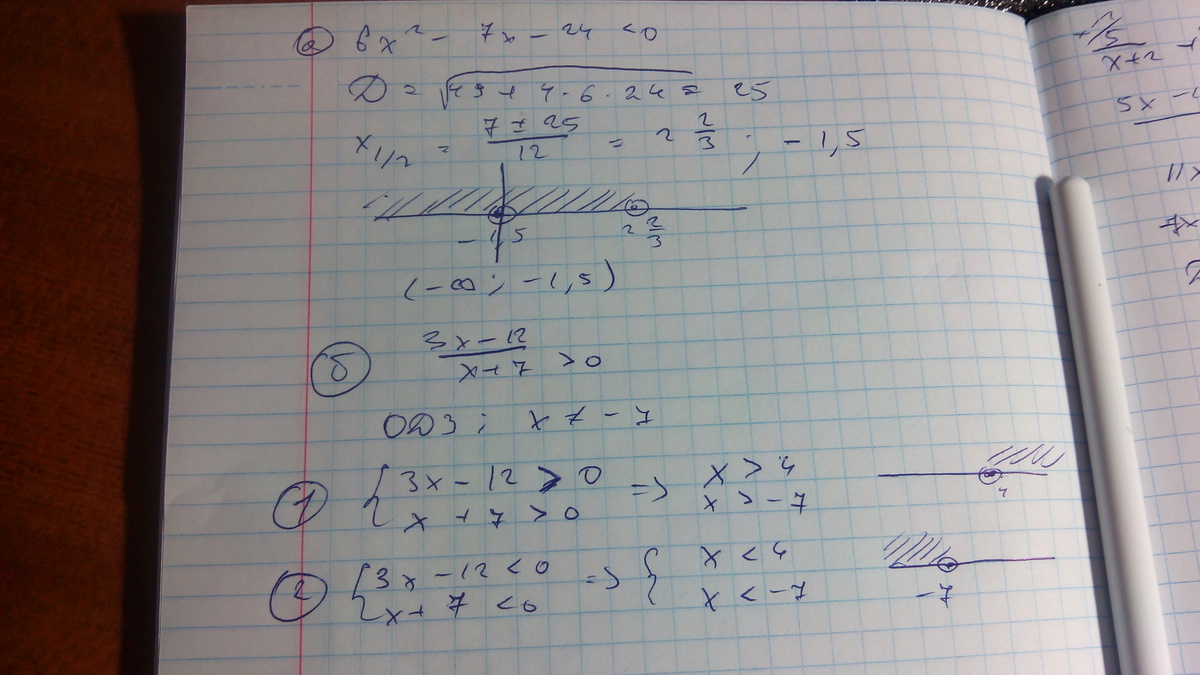 а) 6x² - 7x - 24 < 0
Д = √49 + 4·6·24 = 25
x1/2 = 7 ± 25 / 12 = 2 2/3 ; - 1,5
- 1,5 2 2/3
(-∞; -1,5)
б) 3x - 12 / x + 7 > 0
ОДЗ; x ≠ - 7
1) { 3x - 12 > 0 => x > 4
x + 7 > 0 x > - 7
4
2) { 3x - 12 < 0 => { x < 4
x + 7 < 0 x < - 7
- 7
x+2
5x -
11x
7x